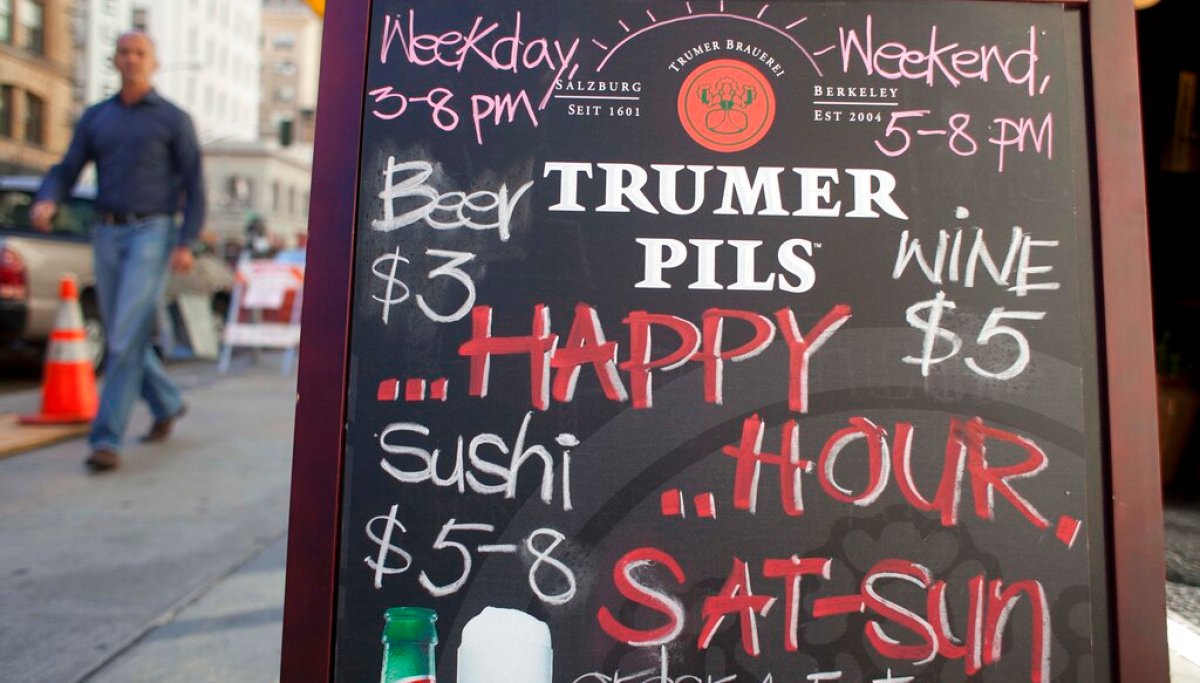 Weekday,
3-8 pm
TRUMER BRAUEREI
SALZBURG
SEIT 1601
BERKELEY
EST 2004
Weekend,
5-8 pm
TRUMER
PILS™
Beer
$3
WINE
$5
...HAPPY
..HOUR.
Sushi
$5-8
SAT-Sun